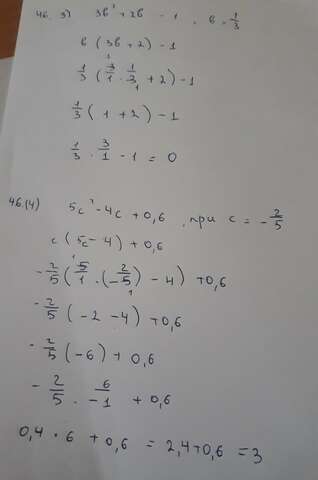 46. 3) 3в² + 2в - 1 , в = 1/3
в (3в + 2) - 1
1/3 (3/1 · 1/3 + 2) - 1
1/3 (1 + 2) - 1
1/3 · 3/1 - 1 = 0
46.(4) 5с² - 4с + 0,6 , при с = - 2/5
с (5с - 4) + 0,6
- 2/5 (5/1 · (- 2/5) - 4) + 0,6
- 2/5 (-2 - 4) + 0,6
- 2/5 (-6) + 0,6
- 2/5 · 6/-1 + 0,6
0,4 · 6 + 0,6 = 2,4 + 0,6 = 3